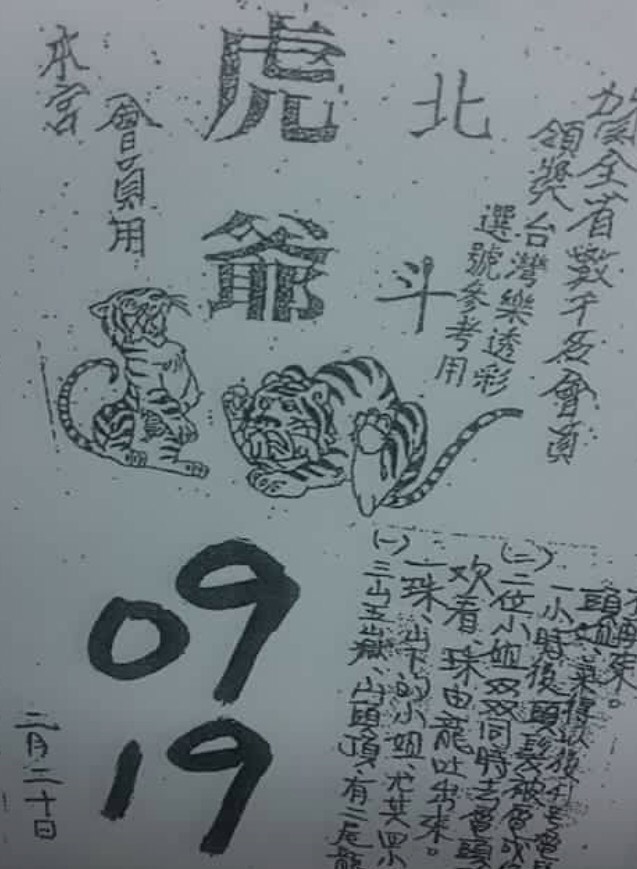 賀全省數千名會員
領獎
台灣樂透彩
選號參考用
北斗
虎爺
會員用
本宮
09
19
二月二十日
(一)三山五嶽、山頭頂、有二尾龍
一珠、山下的小姐、尤其四小
欢看、珠由龍吐出來。
(二)二位小姐双双同時去電頭
一小時後頭髮被電